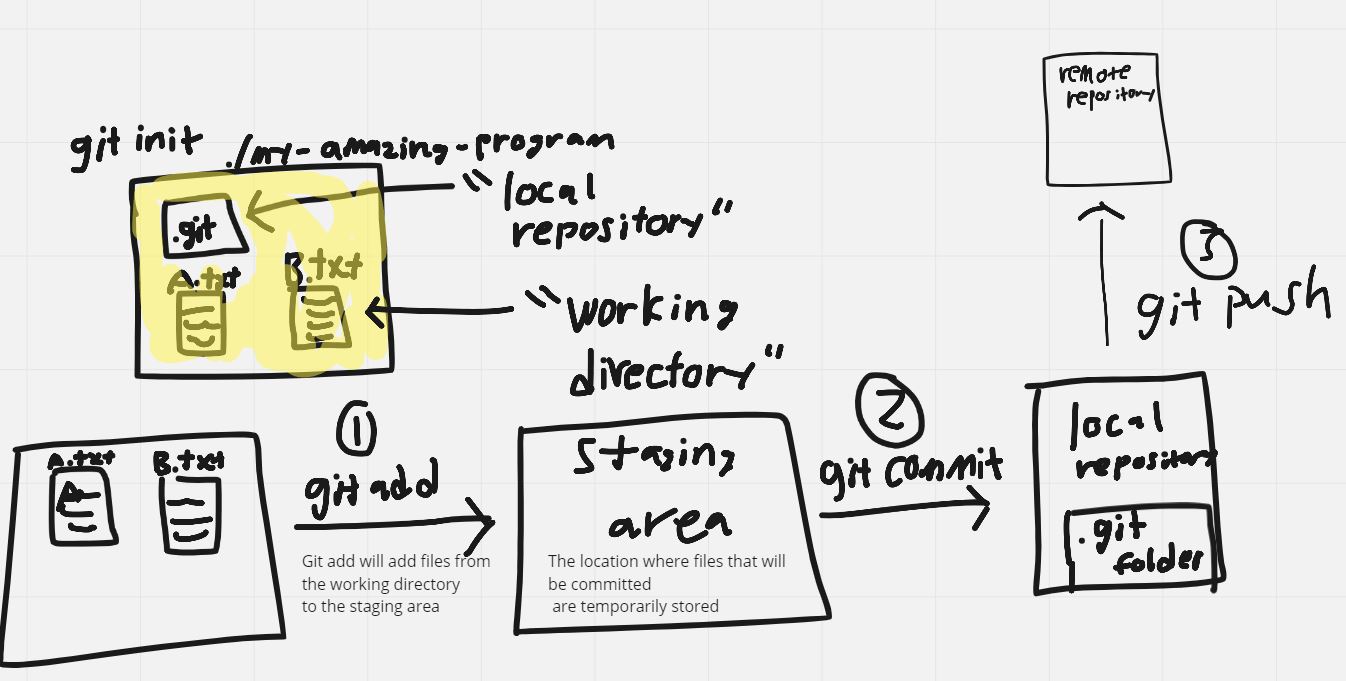 git init ./my-amazing-program
.git
A.txt
B.txt
"local
repository"
"working
directory"
remote
repository
3
git push
A.txt
B.txt
A
1
git add
Git add will add files from
the working directory
to the staging area
Staging
area
The location where files that will
be committed
are temporarily stored
2
git commit
local
repository
.git
folder